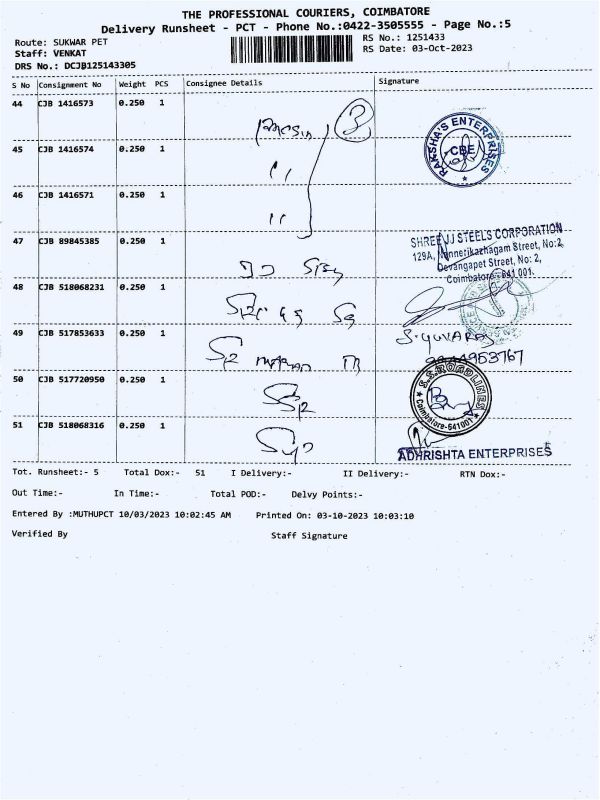 THE PROFESSIONAL COURIERS, COIMBATORE
Delivery Runsheet - PCT - Phone No.:0422-3505555 - Page No.:5
Route: SUKWAR PET
RS No.: 1251433
Staff: VENKAT
RS Date: 03-Oct-2023
DRS No.: DCJB125143305
S No Consignment No Weight PCS Consignee Details Signature
44 CJB 1416573 0.250 1
3
RAKSHA'S ENTERPRISES
CBE
45 CJB 1416574 0.250 1
"
46 CJB 1416571 0.250 1
"
47 CJB 89845385 0.250 1
SHREE JJ STEELS CORPORATION
129A, Street, No:2,
Devangapet Street, No: 2,
Coimbatore-641 001.
48 CJB 518068231 0.250 1
49 CJB 517853633 0.250 1
S. YUVARAJ
50 CJB 517720950 0.250 1
S.S. ROADLINES
Coimbatore-641001
51 CJB 518068316 0.250 1
ADHRISHTA ENTERPRISES
Tot. Runsheet:- 5 Total Dox:- 51 I Delivery:- II Delivery:- RTN Dox:-
Out Time:- In Time:- Total POD:- Delvy Points:-
Entered By :MUTHUPCT 10/03/2023 10:02:45 AM Printed On: 03-10-2023 10:03:10
Verified By Staff Signature